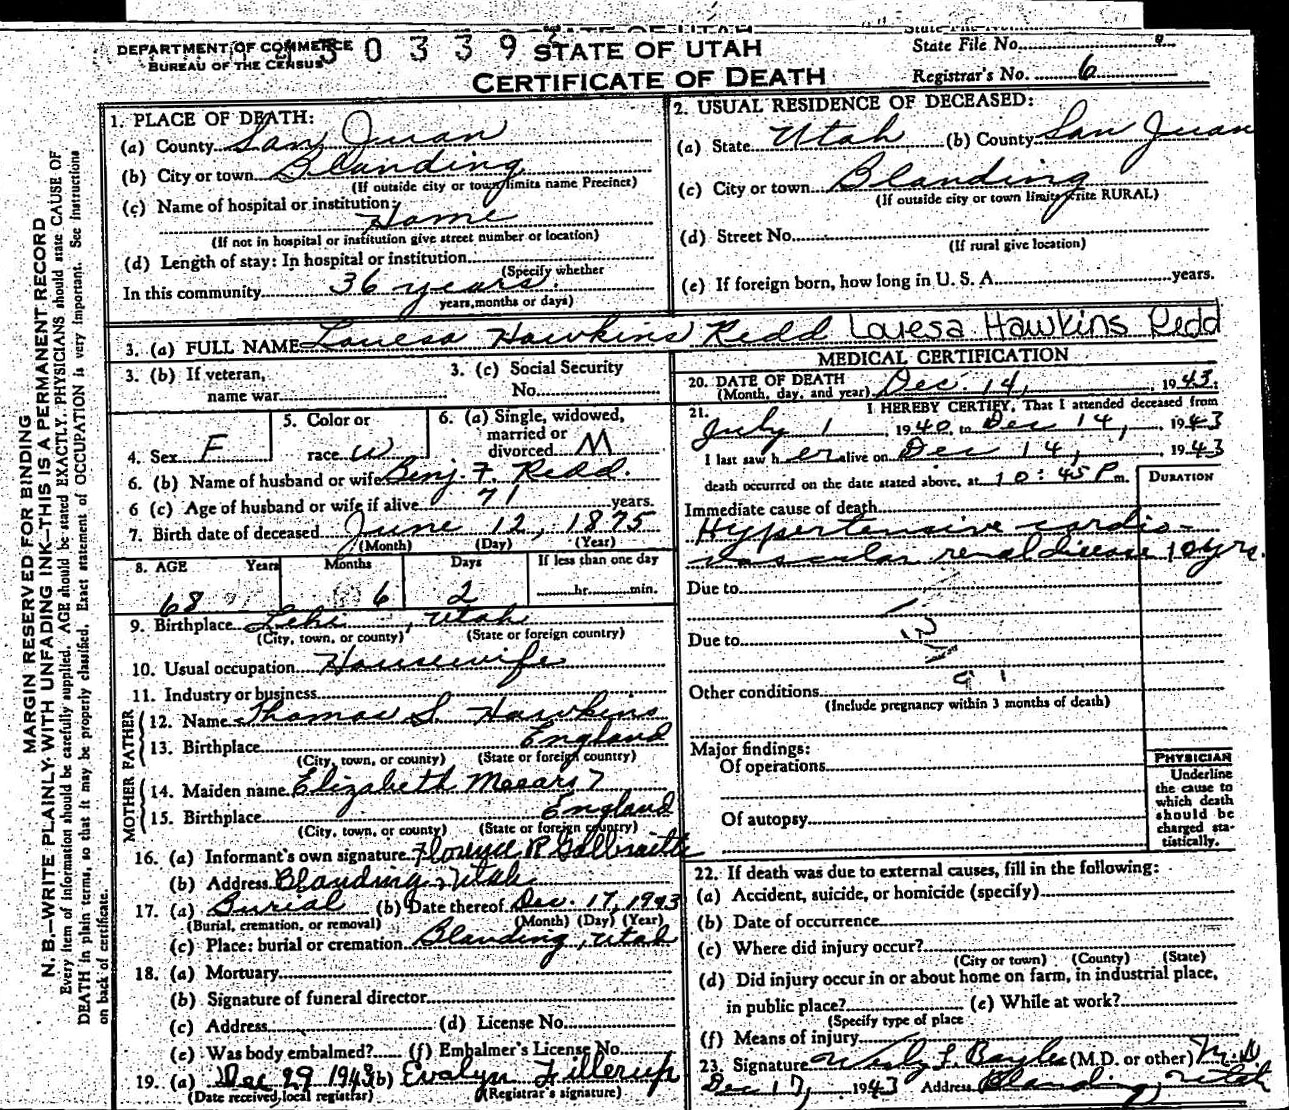 DEPARTMENT OF COMMERCE
BUREAU OF THE CENSUS
3 0 3 3 9
STATE OF UTAH
CERTIFICATE OF DEATH
State File No.
Registrar's No. 6
MARGIN RESERVED FOR BINDING
N. B.—WRITE PLAINLY, WITH UNFADING INK—THIS IS A PERMANENT RECORD
Every item of information should be carefully supplied. AGE should be stated EXACTLY. PHYSICIANS should state CAUSE OF
DEATH in plain terms, so that it may be properly classified. Exact statement of OCCUPATION is very important. See instructions
on back of certificate.
1. PLACE OF DEATH:
(a) County San Juan
(b) City or town Blanding
(If outside city or town limits name Precinct)
(c) Name of hospital or institution:
Home
(If not in hospital or institution give street number or location)
(d) Length of stay: In hospital or institution
(Specify whether
In this community 36 years.
years, months or days)
2. USUAL RESIDENCE OF DECEASED:
(a) State Utah (b) County San Juan
(c) City or town Blanding
(If outside city or town limits write RURAL)
(d) Street No.
(If rural give location)
(e) If foreign born, how long in U. S. A. years.
3. (a) FULL NAME Louesa Hawkins Redd Louesa Hawkins Redd
3. (b) If veteran,
name war
3. (c) Social Security
No.
4. Sex F
5. Color or
race W
6. (a) Single, widowed,
married or
divorced M
6. (b) Name of husband or wife Benj. F. Redd.
6 (c) Age of husband or wife if alive 71 years.
7. Birth date of deceased June 12, 1875
(Month) (Day) (Year)
8. AGE Years Months Days If less than one day
68 6 2 hr. min.
9. Birthplace Lehi, Utah
(City, town, or county) (State or foreign country)
10. Usual occupation Housewife
11. Industry or business
FATHER
12. Name Thomas S. Hawkins
13. Birthplace England
(City, town, or county) (State or foreign country)
MOTHER
14. Maiden name Elizabeth
15. Birthplace England
(City, town, or county) (State or foreign country)
16. (a) Informant's own signature Florence R Galbraith
(b) Address Blanding, Utah
17. (a) Burial (b) Date thereof Dec. 17, 1943
(Burial, cremation, or removal) (Month) (Day) (Year)
(c) Place: burial or cremation Blanding, Utah
18. (a) Mortuary
(b) Signature of funeral director
(c) Address (d) License No.
(e) Was body embalmed? (f) Embalmer's License No.
19. (a) Dec 29 1943 (b) Evalyn Fillerup
(Date received local registrar) (Registrar's signature)
MEDICAL CERTIFICATION
20. DATE OF DEATH
(Month, day, and year) Dec. 14, 1943.
21. I HEREBY CERTIFY, That I attended deceased from
July 1, 1940, to Dec 14, 1943
I last saw her alive on Dec 14, 1943
death occurred on the date stated above, at 10:45 P m.
DURATION
Immediate cause of death
Hypertensive cardio-
vascular renal disease 10 yrs.
Due to
Due to
Other conditions
(Include pregnancy within 3 months of death)
Major findings:
Of operations
Of autopsy
PHYSICIAN
Underline
the cause to
which death
should be
charged sta-
tistically.
22. If death was due to external causes, fill in the following:
(a) Accident, suicide, or homicide (specify)
(b) Date of occurrence
(c) Where did injury occur?
(City or town) (County) (State)
(d) Did injury occur in or about home on farm, in industrial place,
in public place? (e) While at work?
(Specify type of place
(f) Means of injury
23. Signature Bayles (M.D. or other) M.D
Dec 17, 1943 Address Blanding, Utah